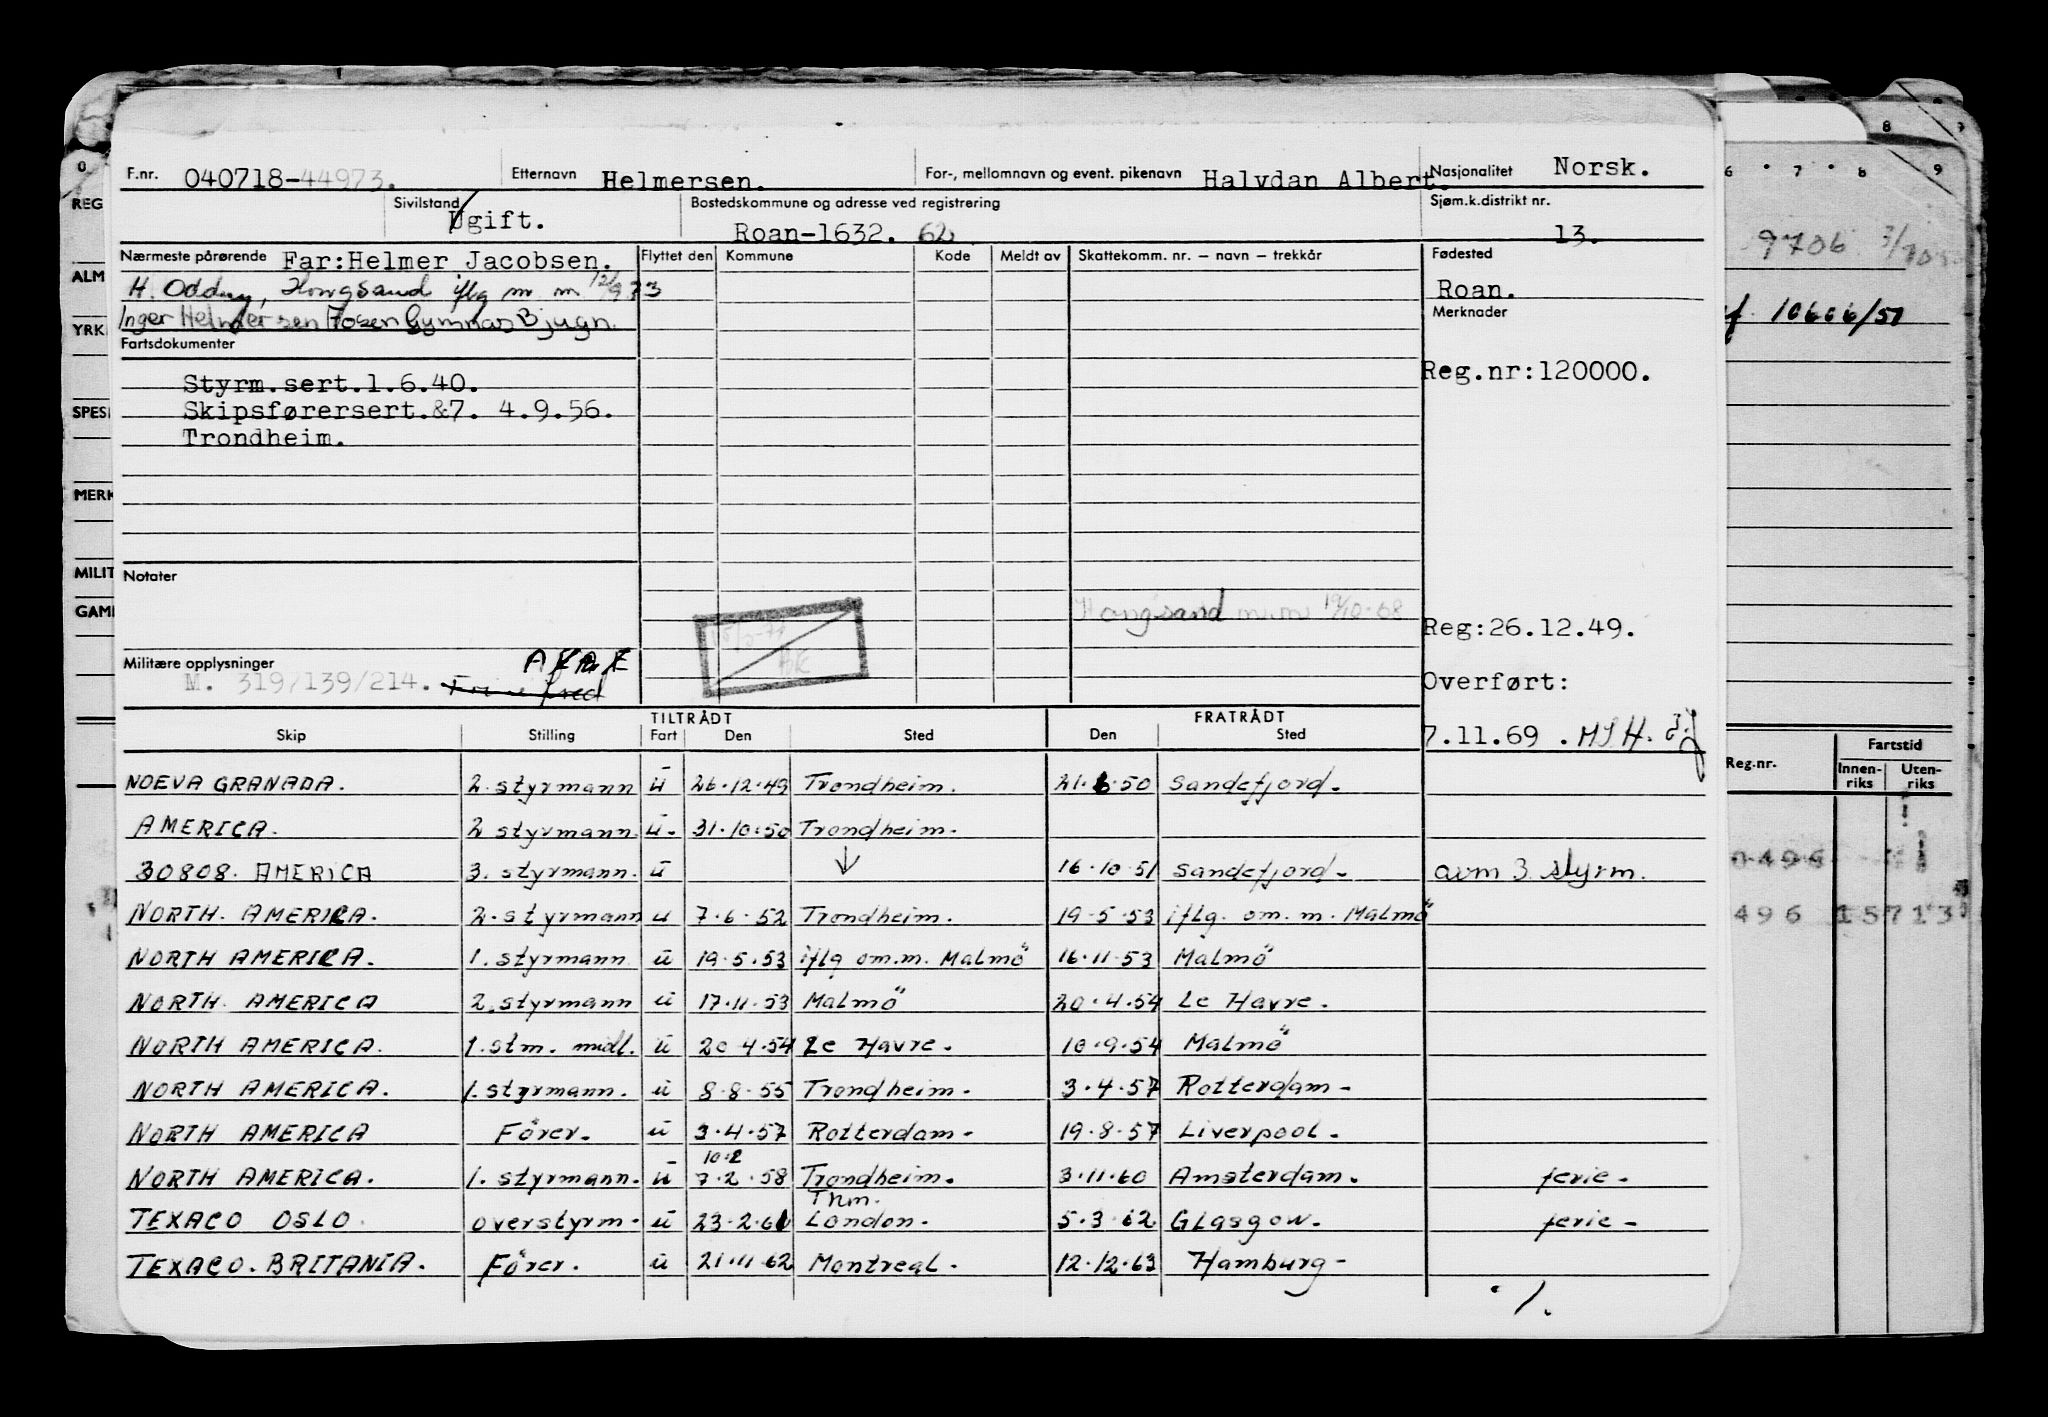 F.nr. 040718-44973. Etternavn Helmersen. For-, mellomnavn og event. pikenavn Halvdan Albert. Nasjonalitet Norsk.
Sivilstand Ugift. Bostedskommune og adresse ved registrering Roan-1632. 62 Sjøm.k.distrikt nr. 13.
Nærmeste pårørende Far:Helmer Jacobsen. Flyttet den Kommune Kode Meldt av Skattekomm. nr. – navn – trekkår Fødested
H. Oddny, Hongsand iflg m.m 12/9 73 Roan.
Inger Helmersen Fosen Gymnas Bjugn. Merknader
Fartsdokumenter
Styrm.sert.1.6.40. Reg.nr:120000.
Skipsførersert.&7. 4.9.56.
Trondheim.
Notater
Hongsand m.m 19/10-68 Reg:26.12.49.
Militære opplysninger
M. 319/139/214. Overført:
7.11.69 .
TILTRÅDT FRATRÅDT
Skip Stilling Fart Den Sted Den Sted
NOEVA GRANADA. 2. styrmann u 26.12.49 Trondheim. 21.6.50 Sandefjord.
AMERICA. 2 styrmann u. 31.10.50 Trondheim.
30808. AMERICA 3. styrmann. u ↓ 16.10.51 Sandefjord. avm 3. styrm.
NORTH. AMERICA. 2. styrmann u 7.6.52 Trondheim. 19.5.53 iflg. om. m. Malmö
NORTH AMERICA. 1. styrmann u 19.5.53 iflg om.m. Malmö 16.11.53 Malmö
NORTH. AMERICA 2. styrmann u 17.11.53 Malmö 20.4.54 Le Havre.
NORTH AMERICA. 1. stm. midl. u 20 4.54 Le Havre. 10.9.54 Malmö
NORTH AMERICA. 1. styrmann. u 8.8.55 Trondheim. 3.4.57 Rotterdam-
NORTH AMERICA Förer. u 3.4.57 Rotterdam- 19.8.57 Liverpool.
10.2
NORTH AMERICA. 1. styrmann. u 7.2.58 Trondheim. 3.11.60 Amsterdam. ferie.
Thm.
TEXACO OSLO. overstyrm. u 23.2.61 London. 5.3.62 Glasgow. ferie-
TEXACO. BRITANIA. Förer. u 21.11.62 Montreal. 12.12.63 Hamburg-
./.
0
REG
ALM
YRK
SPES
MERK
MILIT
GAM
8
6 7 8 9
9706
10606/51
Fartstid
Reg.nr. Innenriks Utenriks
0496
496 15713